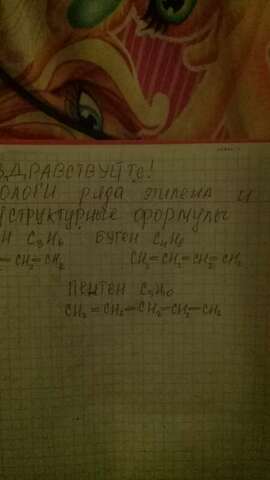 ЗДРАВСТВУЙТЕ!
ОЛОГИ ряда этилена и
СТРУКТУРНЫЕ ФОРМУЛЫ
Н C3H6 БУТЕН C4H8
= CH2 = CH2 CH2 = CH2 = CH2 = CH2
ПЕНТЕН C5H10
CH2 = CH2 — CH2 — CH2 — CH2